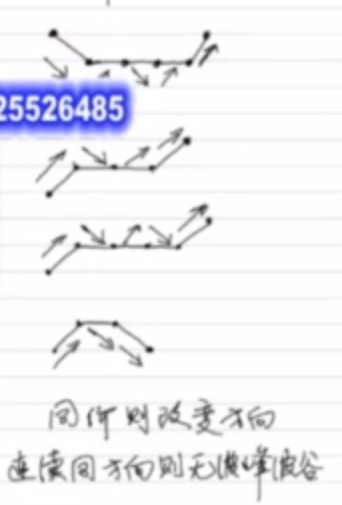 25526485
同价则改变方向
连续同方向则无波峰波谷